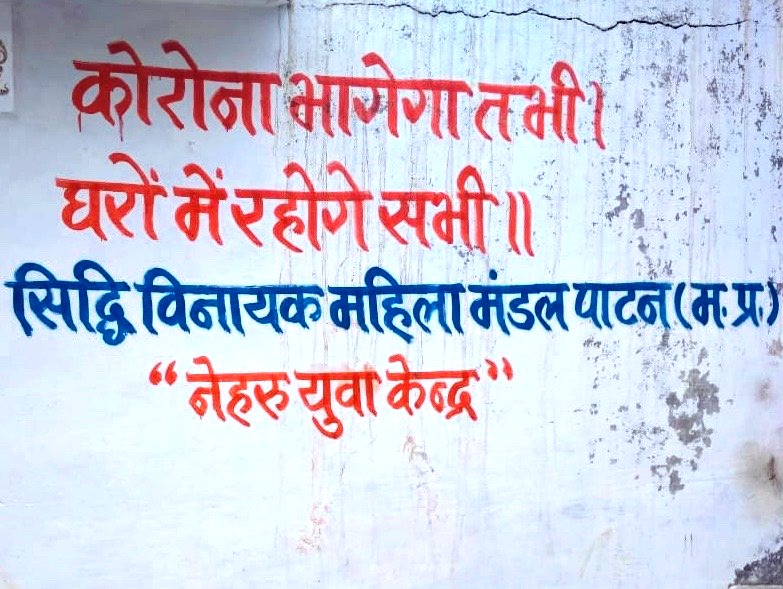 कोरोना भागेगा तभी।
घरों में रहोगे सभी॥
सिद्धि विनायक महिला मंडल पाटन (म. प्र.)
“नेहरु युवा केन्द्र”